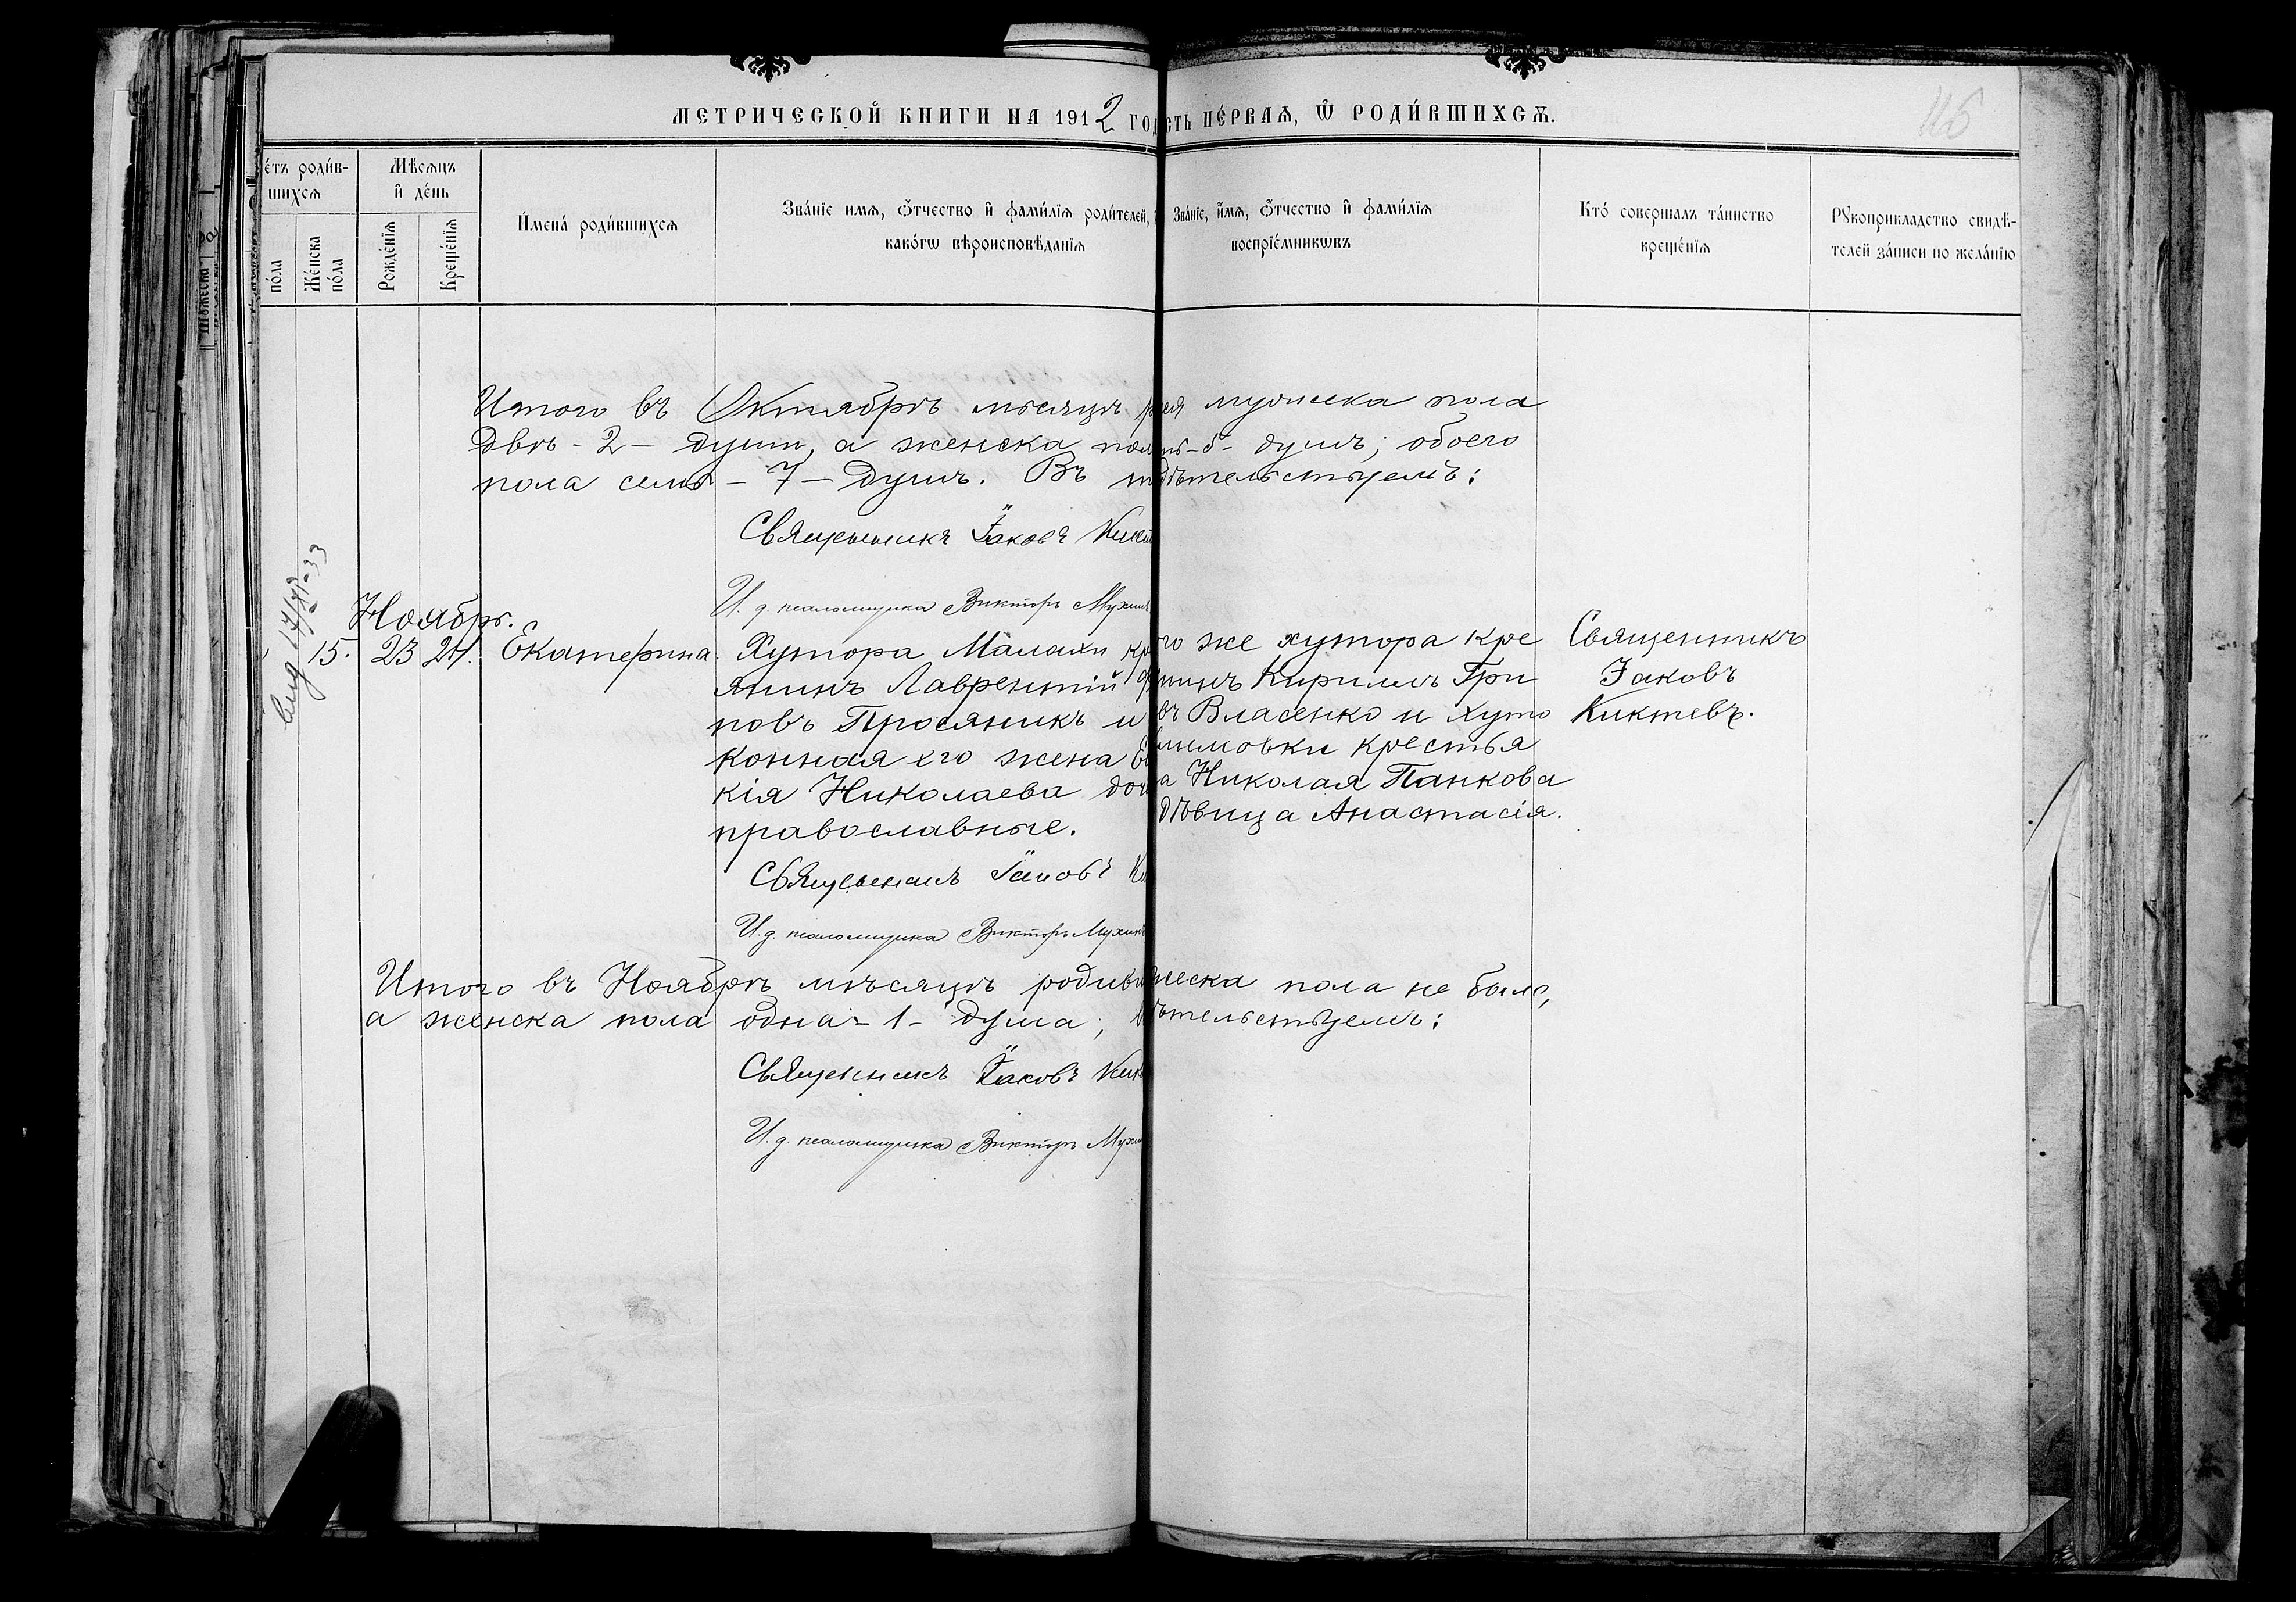 МЕТРИЧЕСКОЙ КНИГИ НА 1912 ГОД
СТЬ ПЕ́РВАѦ, Ѿ РОДИ́ВШИХСѦ.
116
е́тъ роди́в-
шихсѧ
Мѣсѧцъ
и҆ де́нь
по́ла
Же́нска
по́ла
Рожде́нїѧ
Креще́нїѧ
И҆мена̀ роди́вшихсѧ
Зва́нїе имѧ, ѻ҆́тчество и҆ фамилїѧ роди́телей,
како́гѡ вѣроисповѣ́данїѧ
Зва́нїе, и҆́мѧ, ѻ҆́тчество и҆ фамилїѧ
воспрїе́мникѡвъ
Кто́ совершалъ та́инство
креще́нїѧ
Рꙋкоприкладство свидѣ́-
телей за́писи по жела́нїю
Итого въ Октябрѣ мѣсяцѣ
мужеска пола
двѣ - 2 - души, а женска пол
-5- душъ; обоего
пола семь - 7 - душъ. Въ
дѣтельствуемъ:
Священникъ Іаковъ Кикт
И. д. псаломщика Викторъ Мухинъ
Ноябрь.
15. 23 24. Екатерина. Хутора Малахи кр
янинъ Лаврентій
повъ Просяникъ и
конная его жена Е
кія Николаева доч
православные.
го же хутора кре
нинъ Кириллъ Гри
въ Власенко и хуто
лимовки крестья
а Николая Панкова
дѣвица Анастасія.
Священникъ
Іаковъ
Киктевъ.
Священникъ Іаковъ К
И. д. псаломщика Викторъ Мухинъ
Итого въ Ноябрѣ мѣсяцѣ родив
жеска пола не было,
а женска пола одна - 1 - душа;
ѣтельствуемъ:
Священникъ Іаковъ Кик
И. д. псаломщика Викторъ Мухи